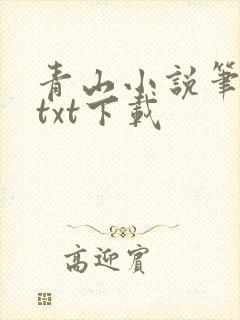 青山小説筆
txt下載
高迎賓